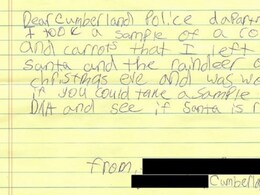 Dear Cumberland Police dapartm
I took a sample of a co
and carrots that I left
Santa and the raindeer
christmas eve and was wo
if you could take a sample
DNA and see if Santa is r
from,
Cumberla